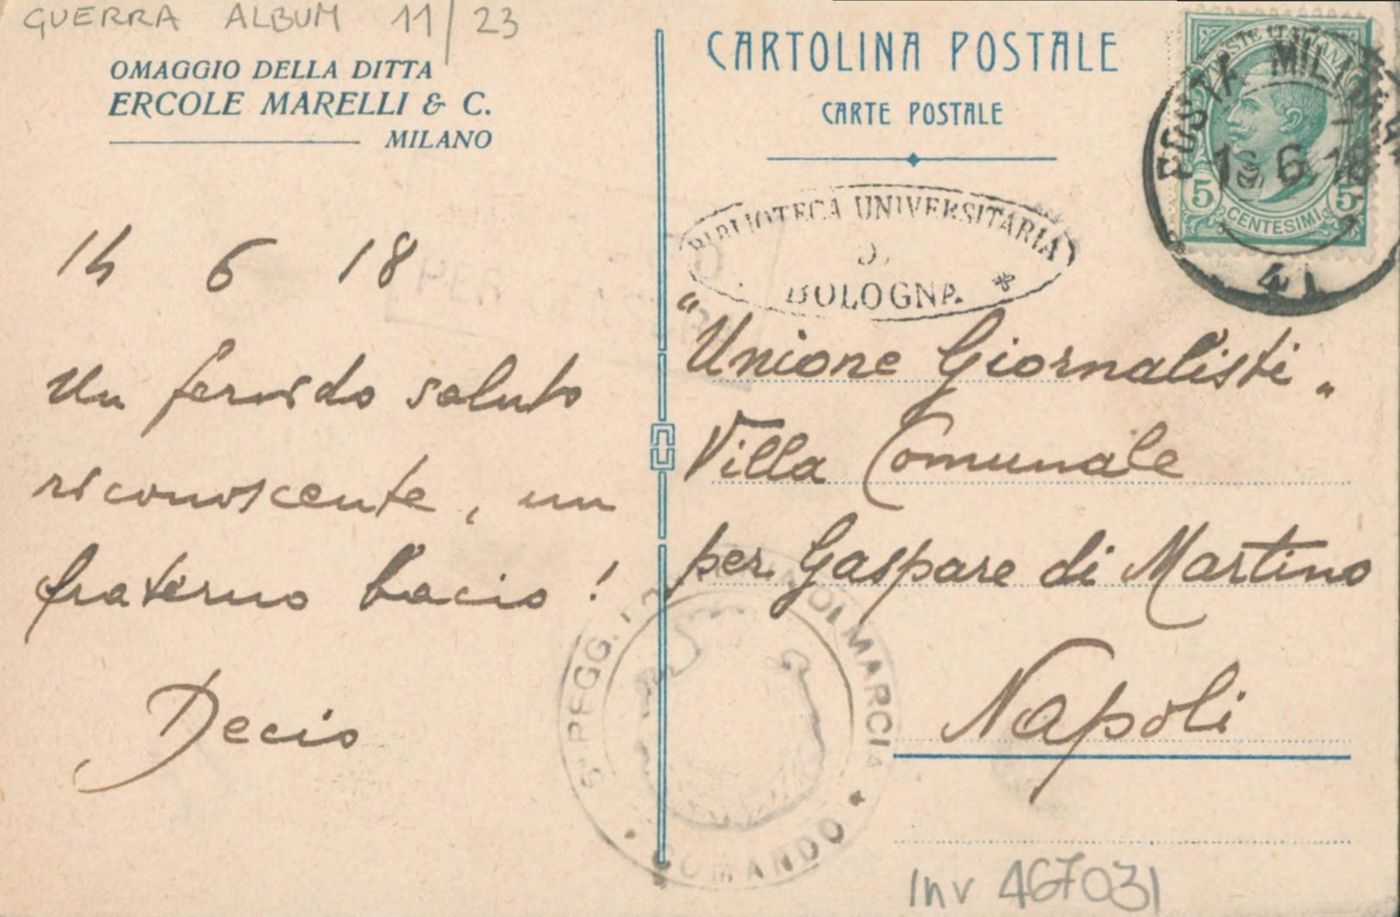 GUERRA ALBUM 11/23
OMAGGIO DELLA DITTA
ERCOLE MARELLI & C.
MILANO
14 6 18
Un fervido saluto
riconoscente, un
fraterno bacio!
Decio
CARTOLINA POSTALE
CARTE POSTALE
POSTE ITALIANE
5 CENTESIMI 5
POSTA MILITARE
6 18
41
BIBLIOTECA UNIVERSITARIA
DI
BOLOGNA
PER
"Unione Giornalisti"
Villa Comunale
per Gaspare di Martino
Napoli
REGG. DI MARCIA
COMANDO
Inv 467031